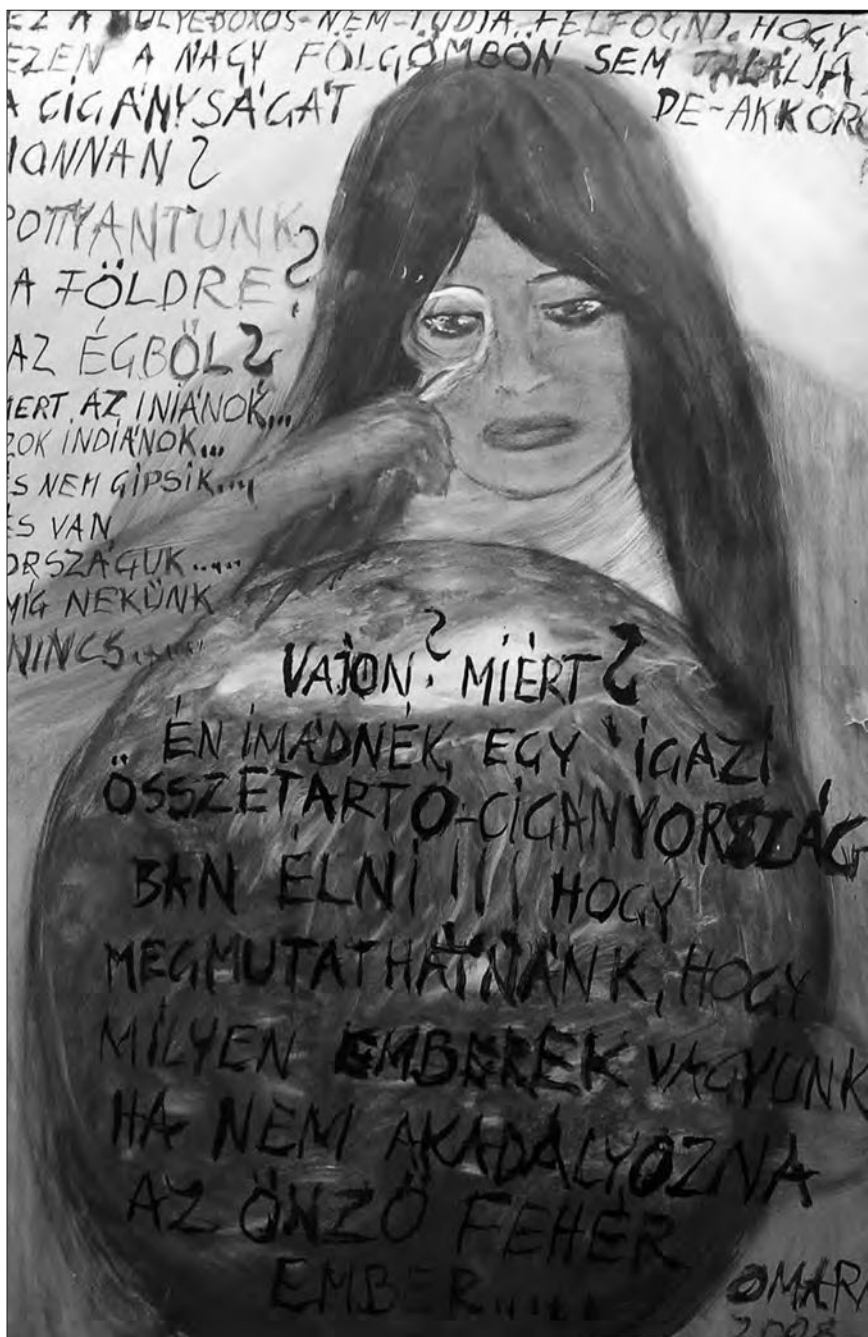 EZ A HÜLYE-BOXOS-NEM-TUDJA, FELFOGNI, HOGY
EZEN A NAGY FÖLGÖMBÖN SEM TALÁLJA
A CIGÁNYSÁGÁT DE-AKKOR
HONNAN?
POTTYANTUNK
A FÖLDRE?
AZ ÉGBŐL?
MERT, AZ INIÁNOK...
AZOK INDIÁNOK...
ÉS NEM GIPSIK....
ÉS VAN,
ORSZÁGUK.....
MÍG NEKÜNK
NINCS.....
VAJON? MIÉRT?
ÉN IMÁDNÉK, EGY IGAZI
ÖSSZETARTO-CIGÁNYORSZÁG
BAN ÉLNI!!! HOGY
MEGMUTATHATNÁNK, HOGY
MILYEN EMBEREK VAGYUNK
HA NEM AKADÁLYOZNA
AZ ÖNZŐ FEHÉR
EMBER.....
OMARA